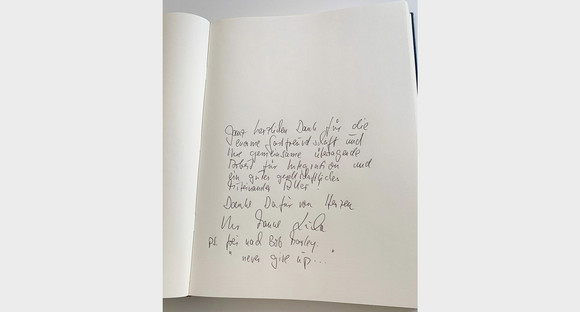 Ganz herzlichen Dank für die
enorme Gastfreundschaft und
Ihre gemeinsame
Arbeit für Integration und
ein gutes gesellschaftliches
Miteinander
Danke Dafür von Herzen
Ihr
PS. frei nach Bob Marley
"never give up..."